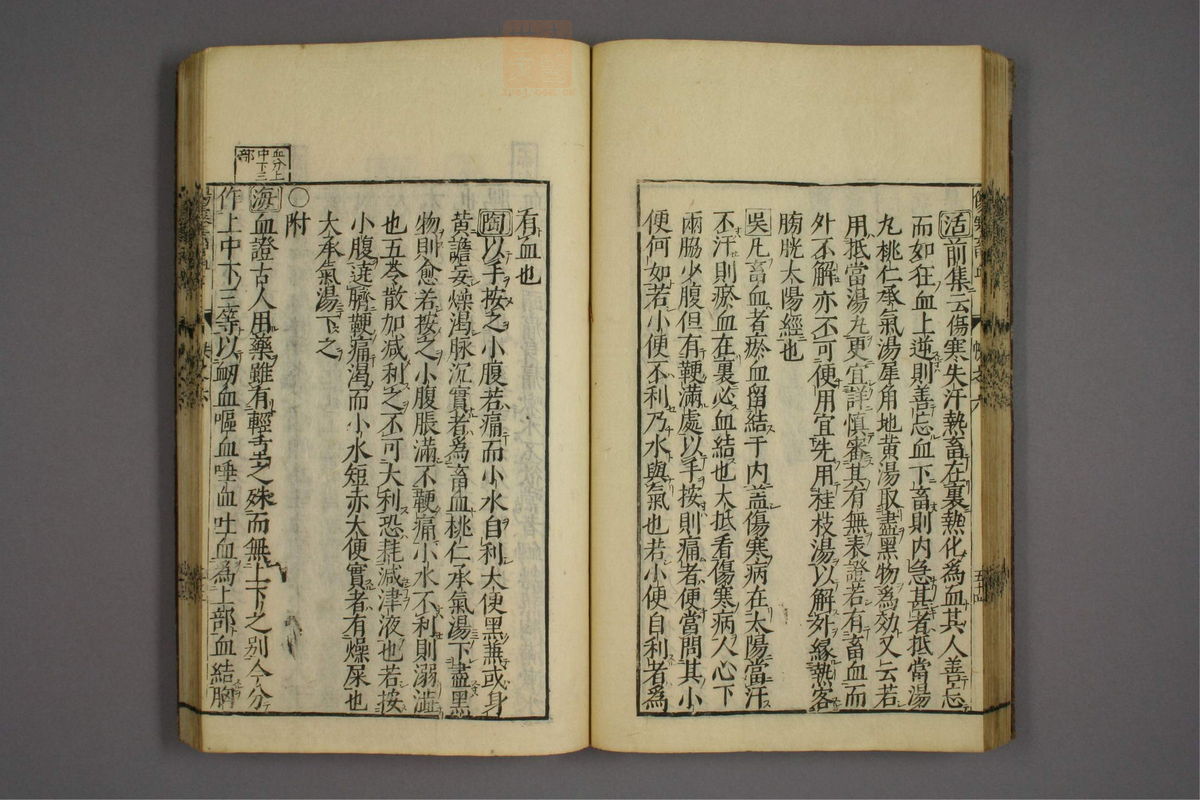 活前集云傷寒失汗熱畜在裏熱化為血其人善忘
而如狂血上逆則善忘血下畜則内急甚者抵當湯
丸桃仁承氣湯犀角地黄湯取盡黑物為効又云若
用抵當湯丸更宜詳慎審其有無表證若有畜血而
外不解亦不可便用宜先用桂枝湯以解外縁熱客
膀胱太陽經也
吳凡畜血者瘀血留結于内盖傷寒病在太陽當汗
不汗則瘀血在裏必血結也大抵看傷寒病人心下
兩脇少腹但有鞕滿處以手按則痛者便當問其小
便何如若小便不利乃水與氣也若小便自利者為
有血也
陶以手按之小腹若痛而小水自利大便黑兼或身
黄譫妄燥渴脉沉實者為畜血桃仁承氣湯下盡黑
物則愈若按之小腹脹滿不鞕痛小水不利則溺澁
也五苓散加减利之不可大利恐耗减津液也若按
小腹遶臍鞕痛渴而小水短赤大便實者有燥屎也
大承氣湯下之
○附
血分上中下三部
海血證古人用藥雖有輕重之殊而無上下之别今分
作上中下三等以衂血嘔血唾血吐血為上部血結胸